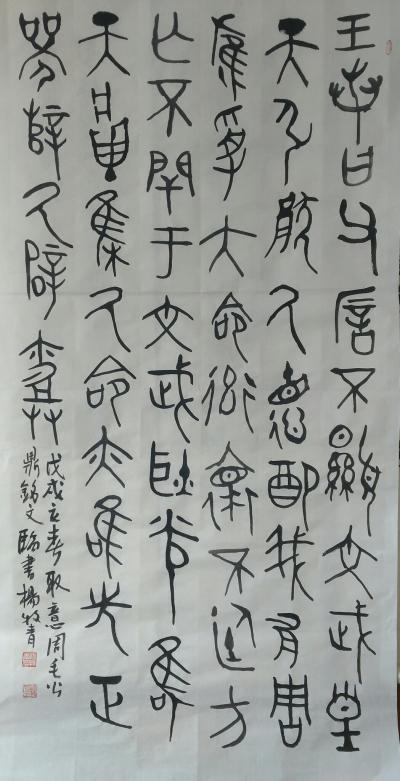 王若曰父㕂不顯文武皇
天引猒厥德配我有周
膺受大命率懷不廷方
亡不閈于文武耿光唯
天將集厥命亦唯先正
襄辥厥辟
戊戌立春取意周毛公
鼎銘文臨書楊牧青